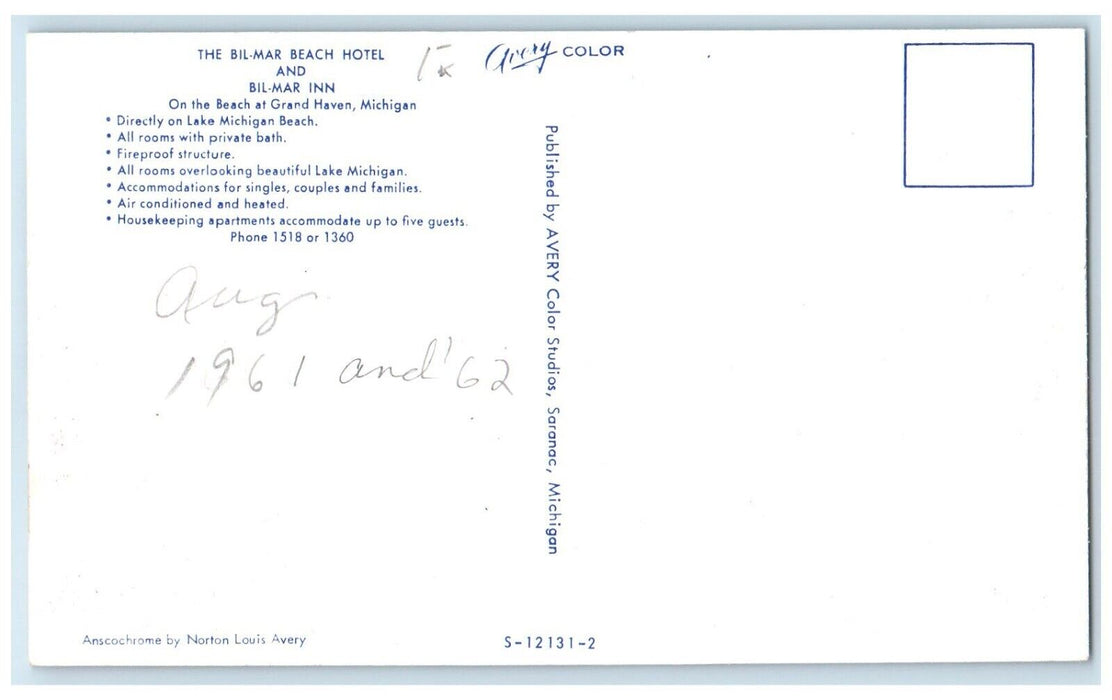 THE BIL-MAR BEACH HOTEL
AND
BIL-MAR INN
On the Beach at Grand Haven, Michigan
• Directly on Lake Michigan Beach.
• All rooms with private bath.
• Fireproof structure.
• All rooms overlooking beautiful Lake Michigan.
• Accommodations for singles, couples and families.
• Air conditioned and heated.
• Housekeeping apartments accommodate up to five guests.
Phone 1518 or 1360
Aug
1961 and '62
Anscochrome by Norton Louis Avery
Avery COLOR
Published by AVERY Color Studios, Saranac, Michigan
S-12131-2